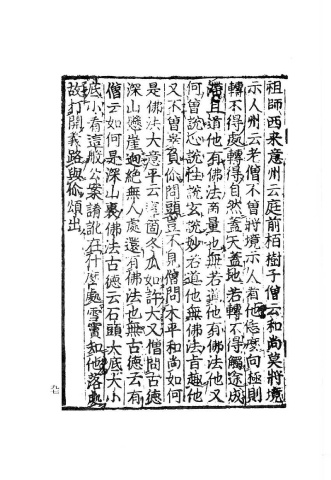 祖師西来意州云庭前栢樹子僧云和尚莫將境
示人州云老僧不曽將境示人看他恁麽向極則
轉不得處轉得自然盖天盖地若轉不得觸途成
滯且道他有佛法商量也無若道他有佛法他又
何曽說心說性說玄說妙若道他無佛法旨趣他
又不曽辜負你問頭豈不見僧問木平和尚如何
是佛法大意平云這箇冬瓜如許大又僧問古德
深山懸崖迥絶無人處還有佛法也無古德云有
僧云如何是深山裏佛法古德云石頭大底大小
底小看這般公案誵訛在什麽處雪竇知他落處
故打開義路與你頌出